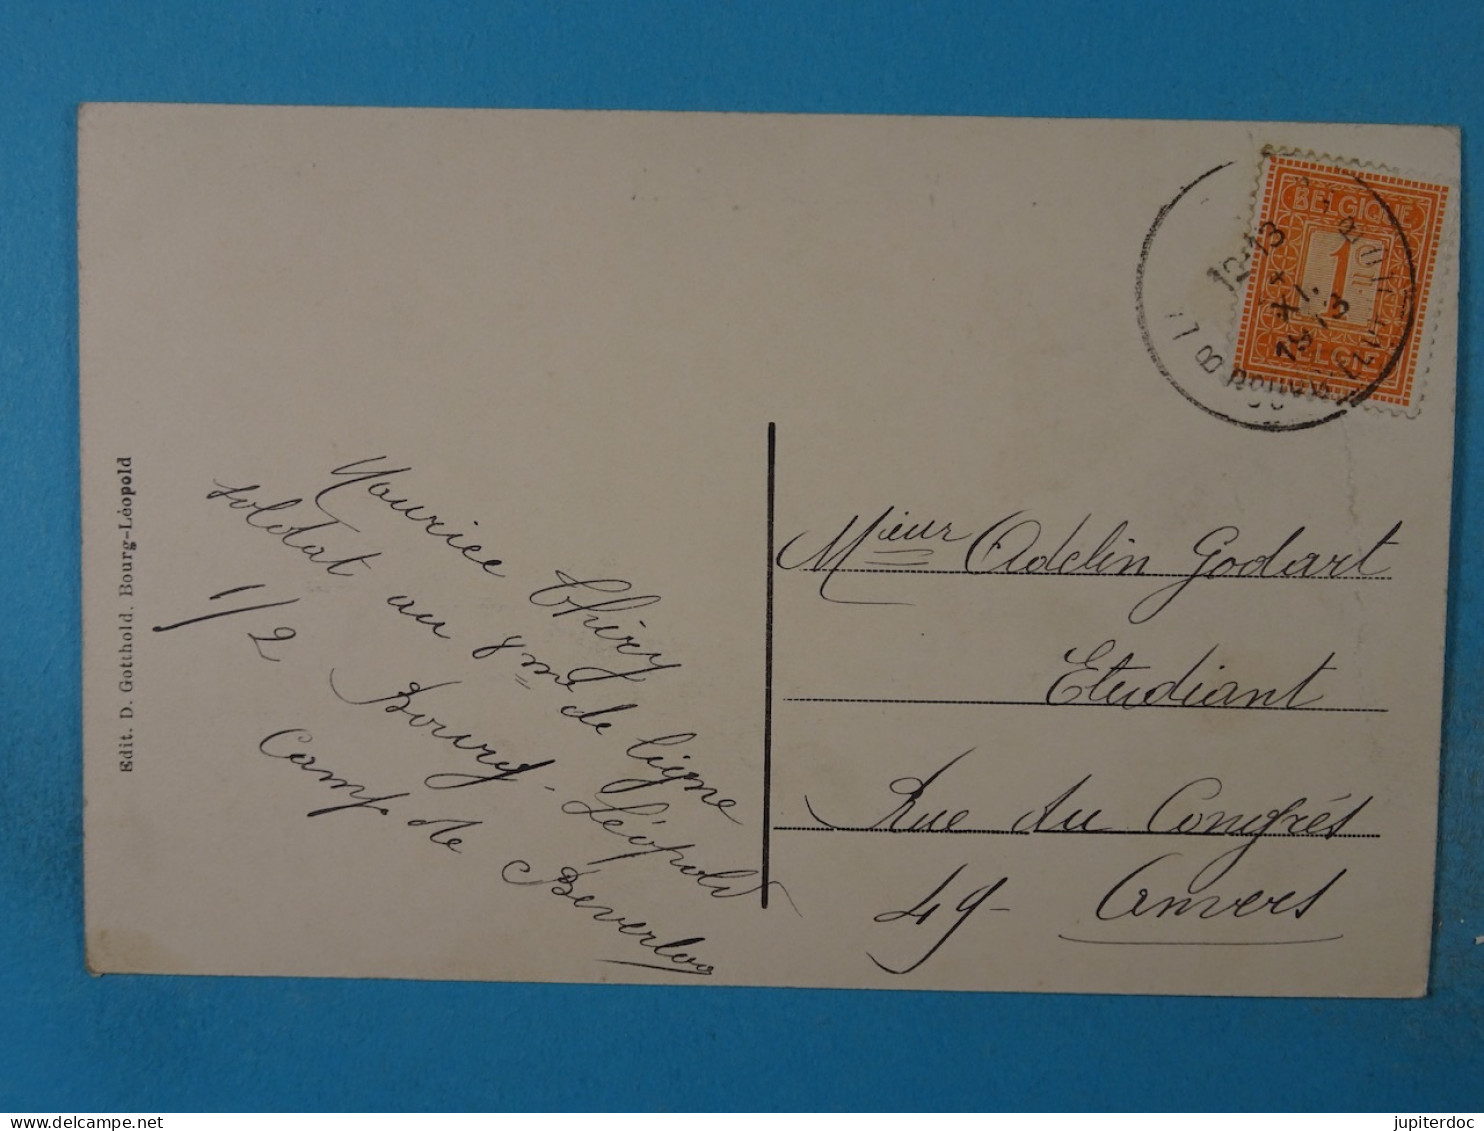 Edit. D. Gotthold. Bourg-Léopold
Maurice Thiry
soldat au 8me de ligne
1/2 Bourg-Léopold
Camp de Beverloo
BELGIQUE
1
BELGIË
12-13
XI.
1913
Mieur Adelin Godart
Etudiant
Rue du Congrés
49- Anvers
jupiterdoc
delcampe.net